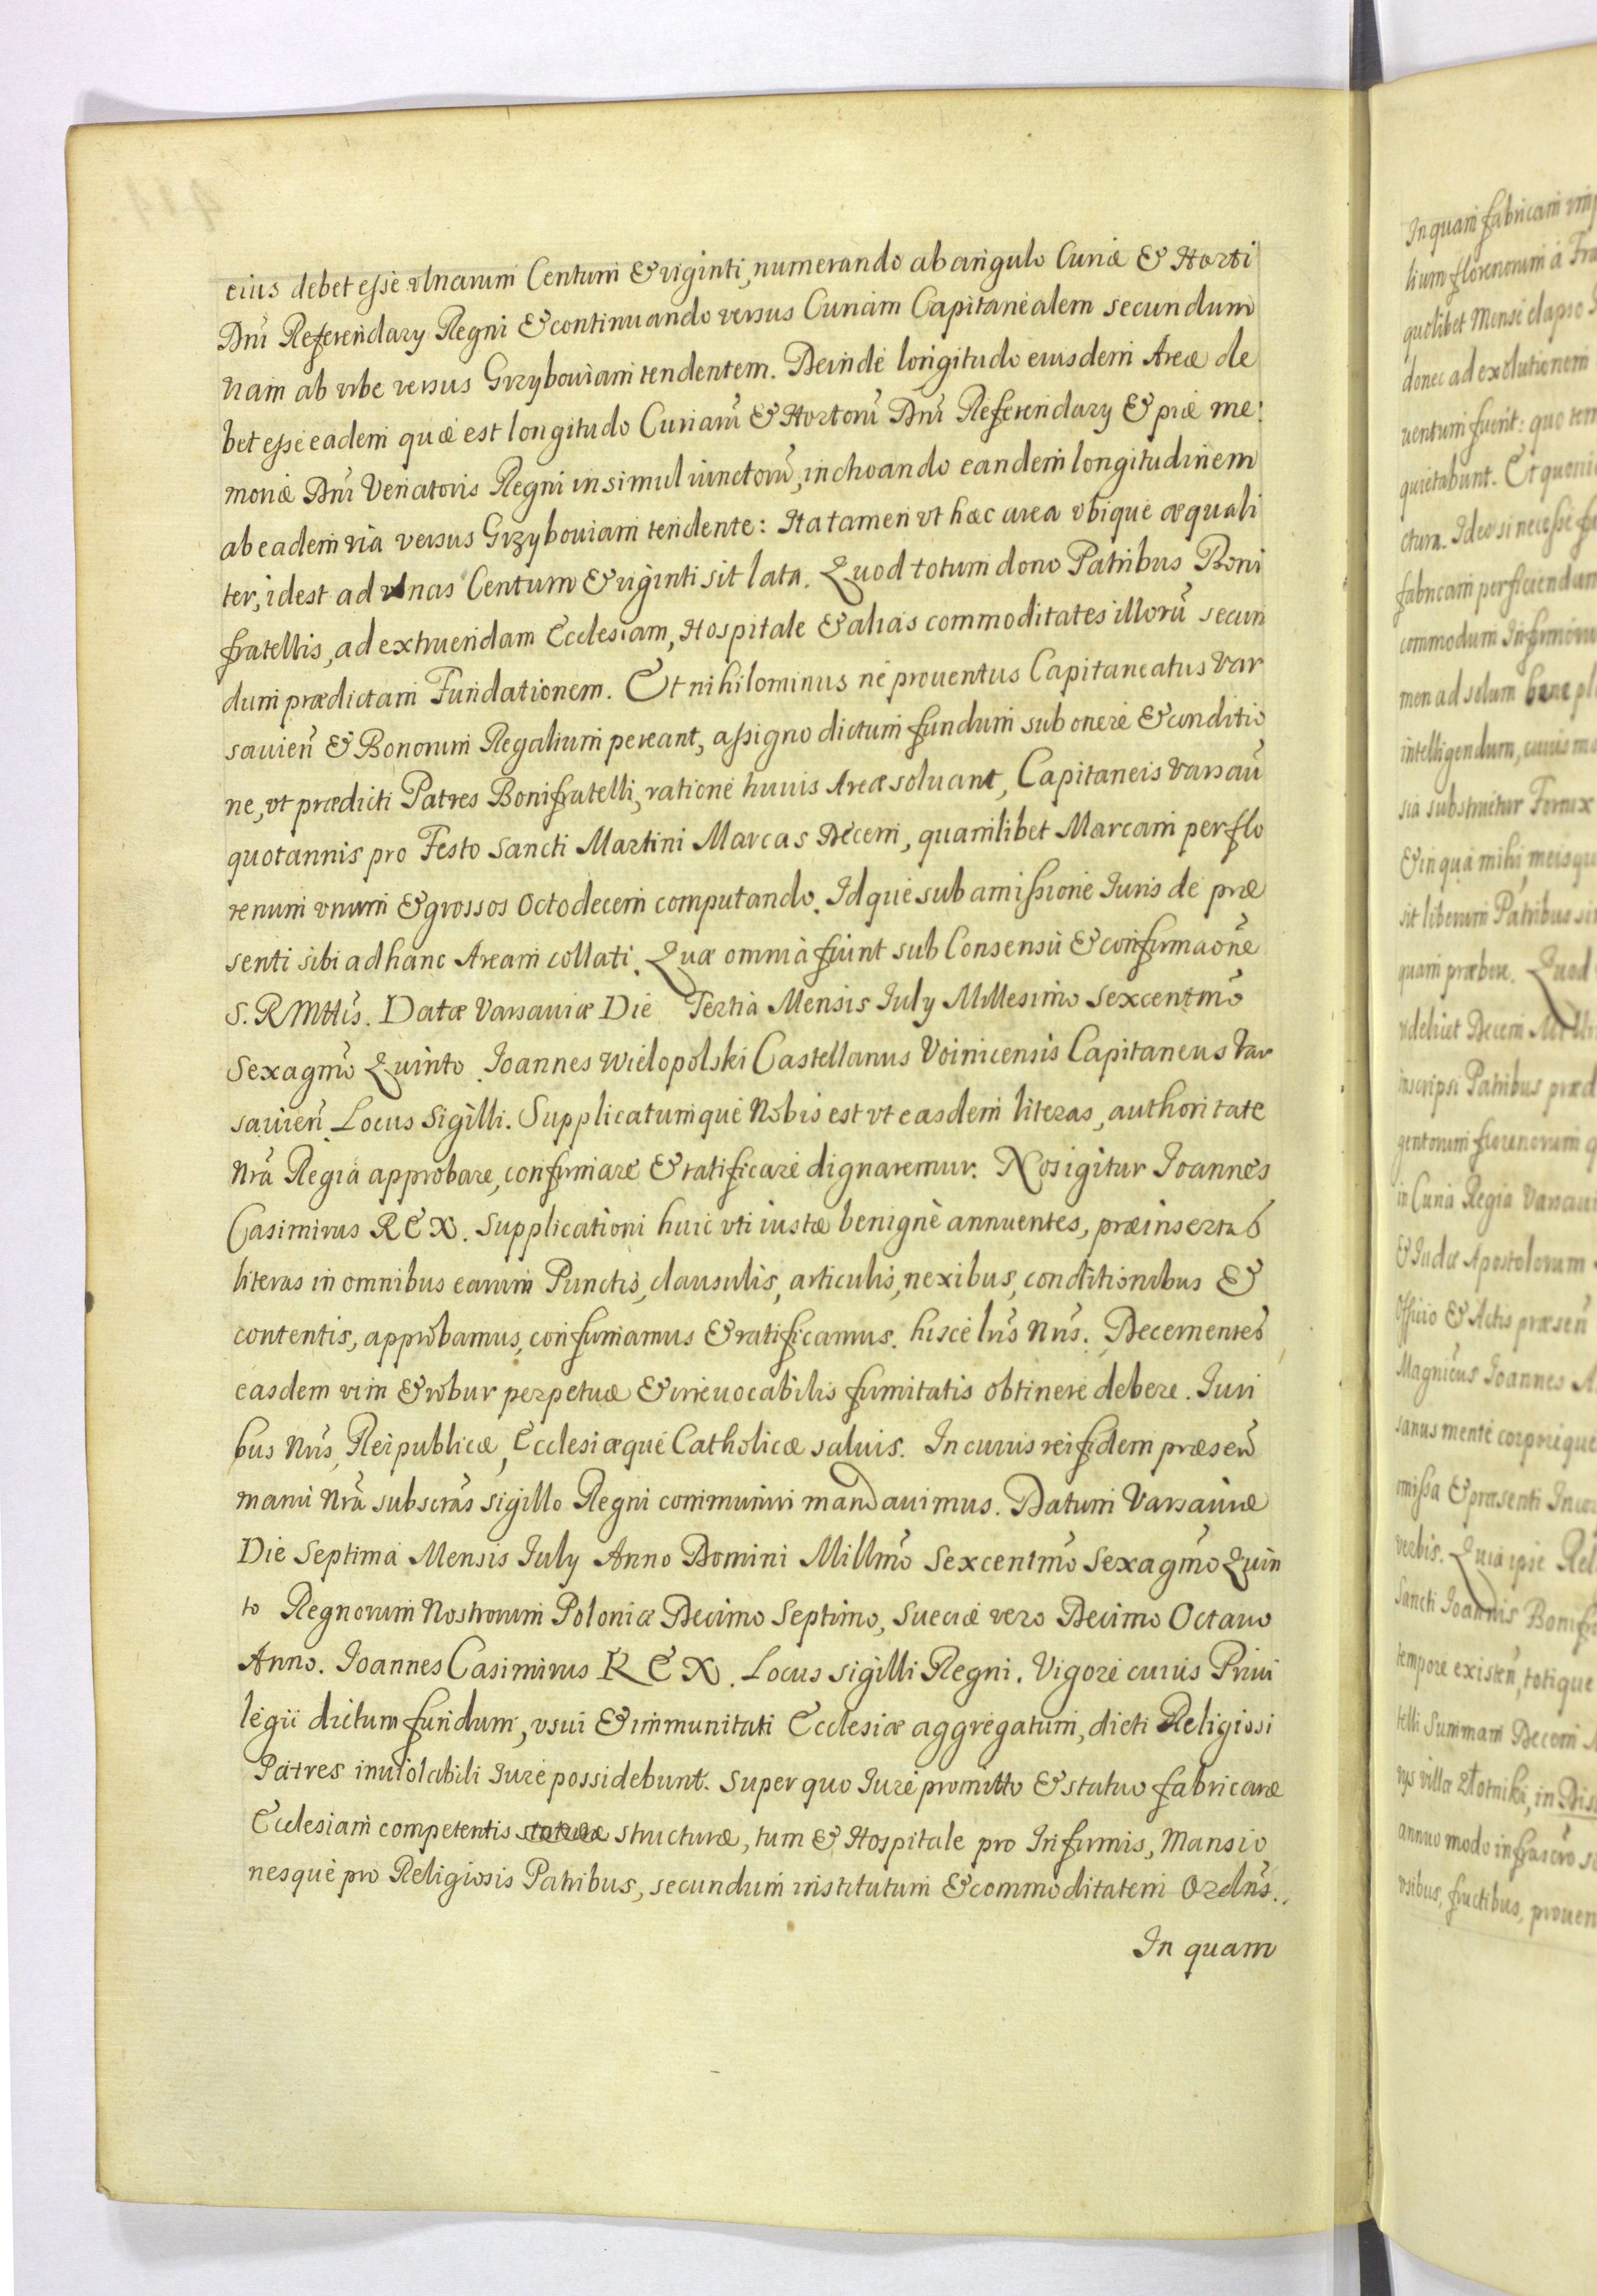 eius debet esse vlnarum Centum & viginti, numerando ab angulo Curiæ & Horti
Dnī Referendary Regni & continuando versus Curiam Capitanealem secundum
viam ab vrbe versus Grzyboviam tendentem. Deinde longitudo eiusdem Areæ de
bet esse eadem quæ est longitudo Curiarū & Hortorū Dnī Referendary & præ me:
moriæ Dnī Venatoris Regni insimul iunctorū, inchoando eandem longitudinem
ab eadem via versus Grzyboviam tendente: Ita tamen vt hæc area vbique æquali
ter, idest ad vlnas Centum & viginti sit lata. Quod totum dono Patribus Boni
fratellis, ad extruendam Ecclesiam, Hospitale & alias commoditates illorū secun
dum prædictam Fundationem. Et nihilominus ne prouentus Capitaneatus Var
sauien̄ & Bonorum Regalium pereant, assigno dictum fundum sub onere & conditio
ne, vt prædicti Patres Bonifratelli, ratione huius Areæ soluant, Capitaneis Varsau̅
quotannis pro Festo Sancti Martini Marcas Decem, quamlibet Marcam per flo
renum vnum & grossos octodecem computando. Idque sub amissione Iuris de præ
senti sibi ad hanc Aream collati. Quæ omnia fiunt sub Consensu & confirmaōne
S. R Mttis. Datæ Varsauiæ Die Tertia Mensis July Millesimo Sexcentm̄o
Sexagm̄o Quinto Joannes Wielopolski Castellanus Voinicensis Capitaneus Var
sauien̄. Locus Sigilli. Supplicatumque Nobis est vt easdem literas, authoritate
nr̄a Regia approbare, confirmare & ratificare dignaremur. Nos igitur Joannes
Casimirus REX. Supplicationi huic vti iustæ benigne annuentes, præinsertas
literas in omnibus earum Punctis, clausulis, articulis, nexibus, conditionibus &
contentis, approbamus, confirmamus & ratificamus. hisce lr̄is nr̄is. Decernentes
easdem vim & robur perpetuæ & irreuocabilis firmitatis obtinere debere. Iuri
bus nr̄is, Reipublicæ, Ecclesiæque Catholicæ saluis. In cuius rei fidem præsen̄
manu nr̄a subscr̄as sigillo Regni communiri mandauimus. Datum Varsauiæ
Die Septima Mensis July Anno Domini Millm̄o Sexcentm̄o Sexagm̄o Quin
to Regnorum Nostrorum Poloniæ Decimo Septimo, Sueciæ vero Decimo Octauo
Anno. Joannes Casimirus REX. Locus sigilli Regni. Vigore cuius Priui
legii dictum fundum, vsui & immunitati Ecclesiæ aggregatum, dicti Religiosi
Patres inuiolabili Iure possidebunt. Super quo Iure promitto & statuo fabricare
Ecclesiam competentis structuræ, tum & Hospitale pro Infirmis, Mansio
nesque pro Religiosis Patribus, secundum institutum & commoditatem Ordn̄is.
In quam
In quam fabricam
lium florenorum á Fra
quolibet Mense elapso
donec ad exolutionem
uentum fuerit: quo tem
quietabunt. Et quoni
ctura. Ideo si necesse
fabricam perficiendam
commodum Infirmoru
men ad solum bene pl
intelligendum, cuius
sia substruetur Fornix
& in qua mihi, meisqu
sit liberum Patribus
quam præbere. Quod
videlicet Decem
inscripsi Patribus præd
gentorum florenorum q
in Curia Regia Varsaui
& Iudæ Apostolorum
Officio & Actis præsen̄
Magnicus Joannes
sanus mente corporeque
missa & præsenti
verbis. Quia ipse Rel
Sancti Joannis Bonifr
tempore existen̄, totique
telli Summam Decem
villæ Złotniki, in Dis
annuo modo infrascr̄o
vsibus, fructibus, prouen